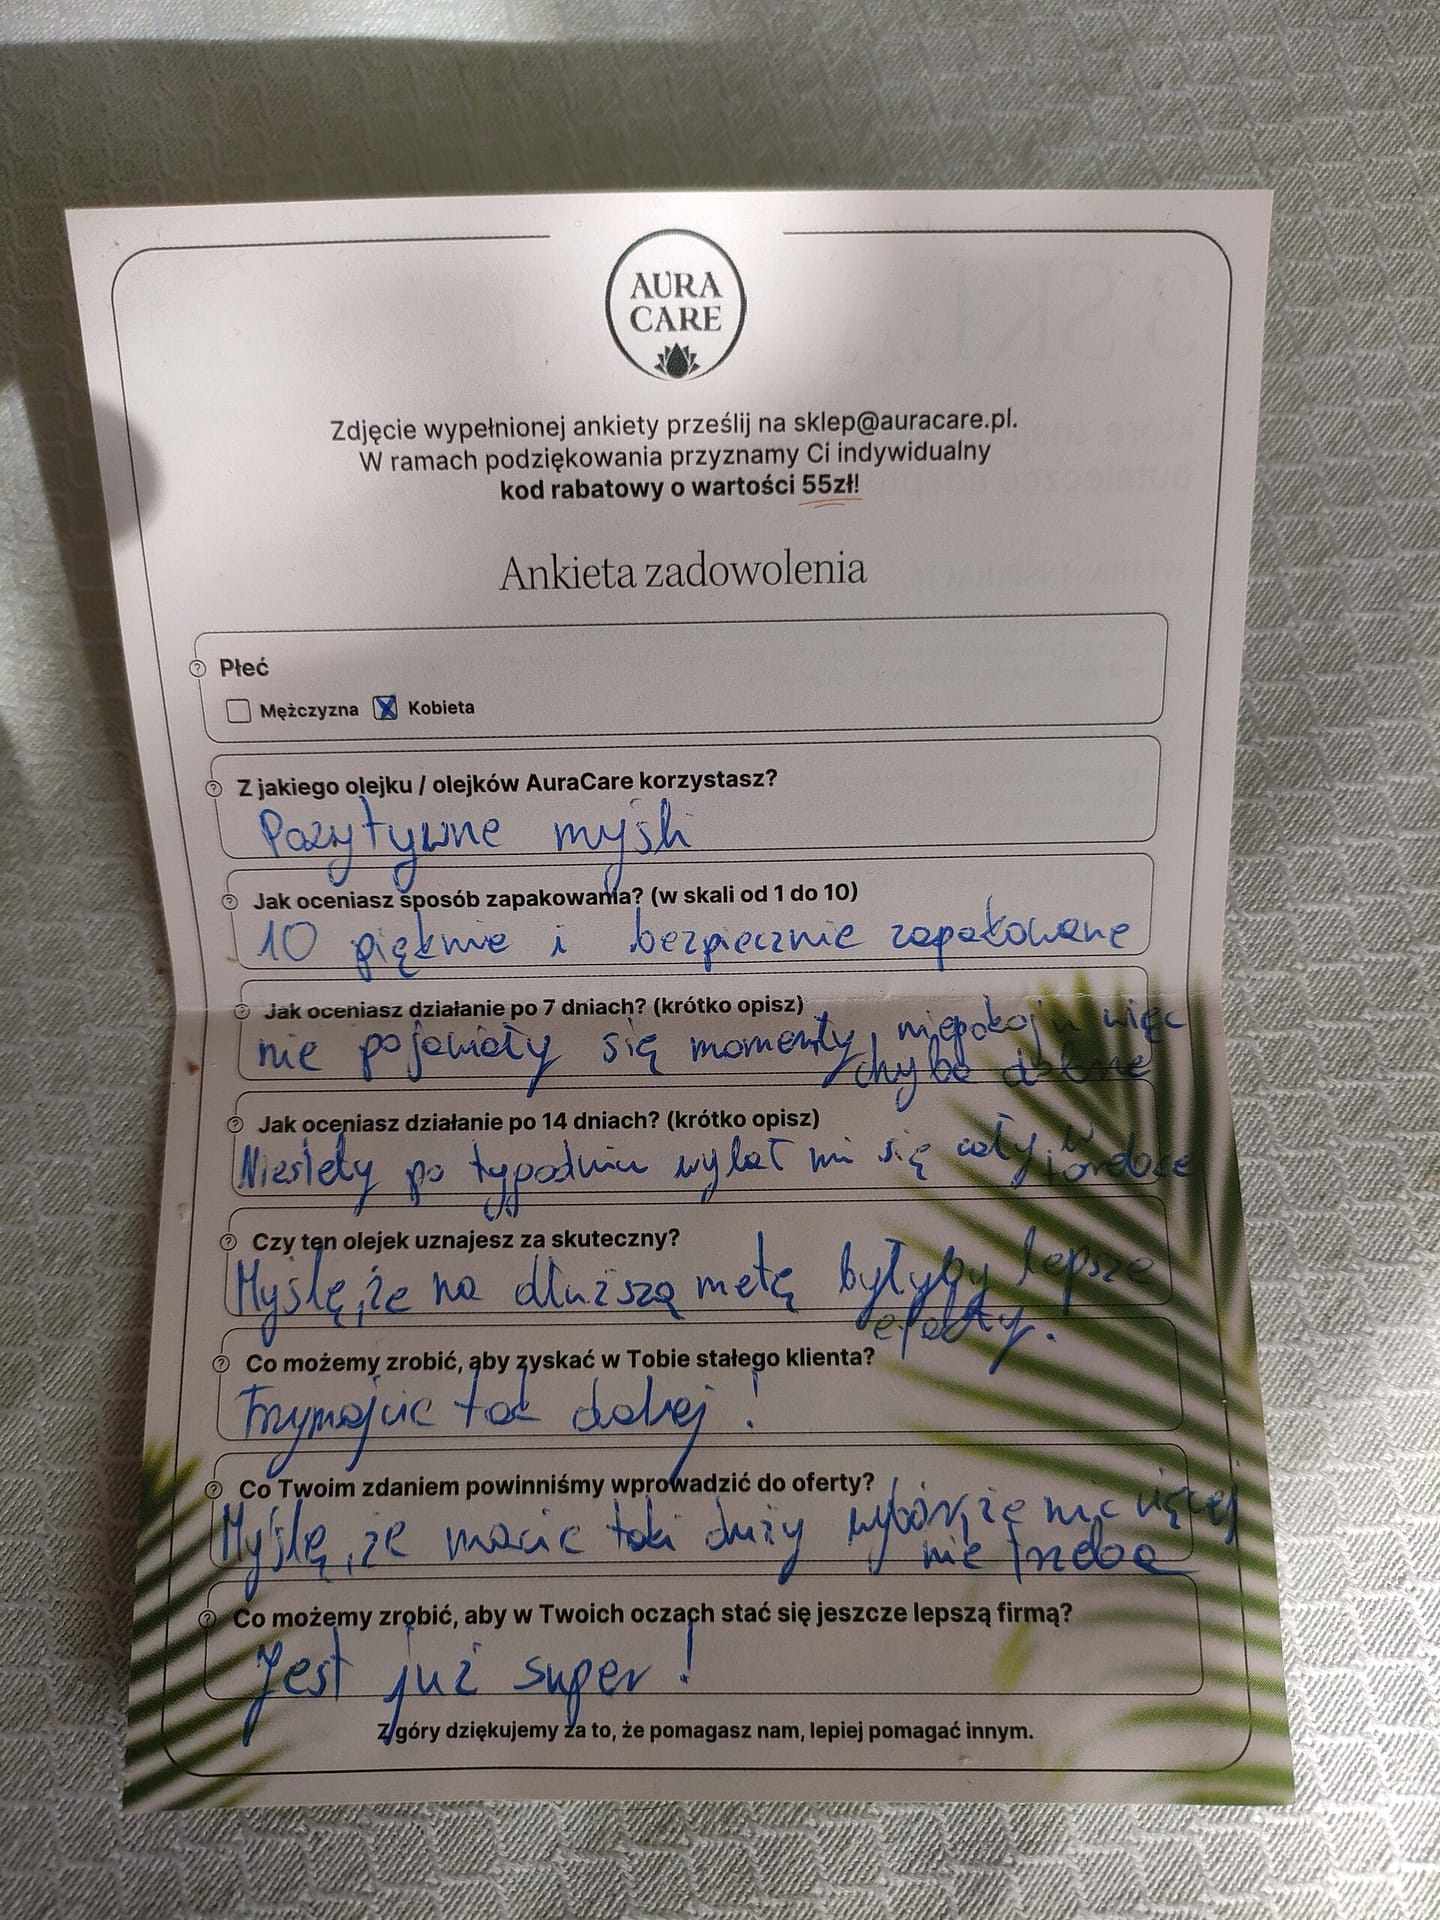 AURA
CARE
Zdjęcie wypełnionej ankiety prześlij na sklep@auracare.pl.
W ramach podziękowania przyznamy Ci indywidualny
kod rabatowy o wartości 55zł!
Ankieta zadowolenia
Płeć
Mężczyzna Kobieta
Z jakiego olejku / olejków AuraCare korzystasz?
Pozytywne myśli
Jak oceniasz sposób zapakowania? (w skali od 1 do 10)
10 pięknie i bezpiecznie zapakowane
Jak oceniasz działanie po 7 dniach? (krótko opisz)
nie pojawiały się momenty niepokoju więc
chyba dobrze
Jak oceniasz działanie po 14 dniach? (krótko opisz)
Niestety po tygodniu wylał mi się cały w
torebce
Czy ten olejek uznajesz za skuteczny?
Myślę, że na dłuższą metę byłyby lepsze
efekty.
Co możemy zrobić, aby zyskać w Tobie stałego klienta?
Trzymajcie tak dalej!
Co Twoim zdaniem powinniśmy wprowadzić do oferty?
Myślę, że macie taki duży wybór, że nic więcej
nie trzeba
Co możemy zrobić, aby w Twoich oczach stać się jeszcze lepszą firmą?
Jest już super!
Z góry dziękujemy za to, że pomagasz nam, lepiej pomagać innym.